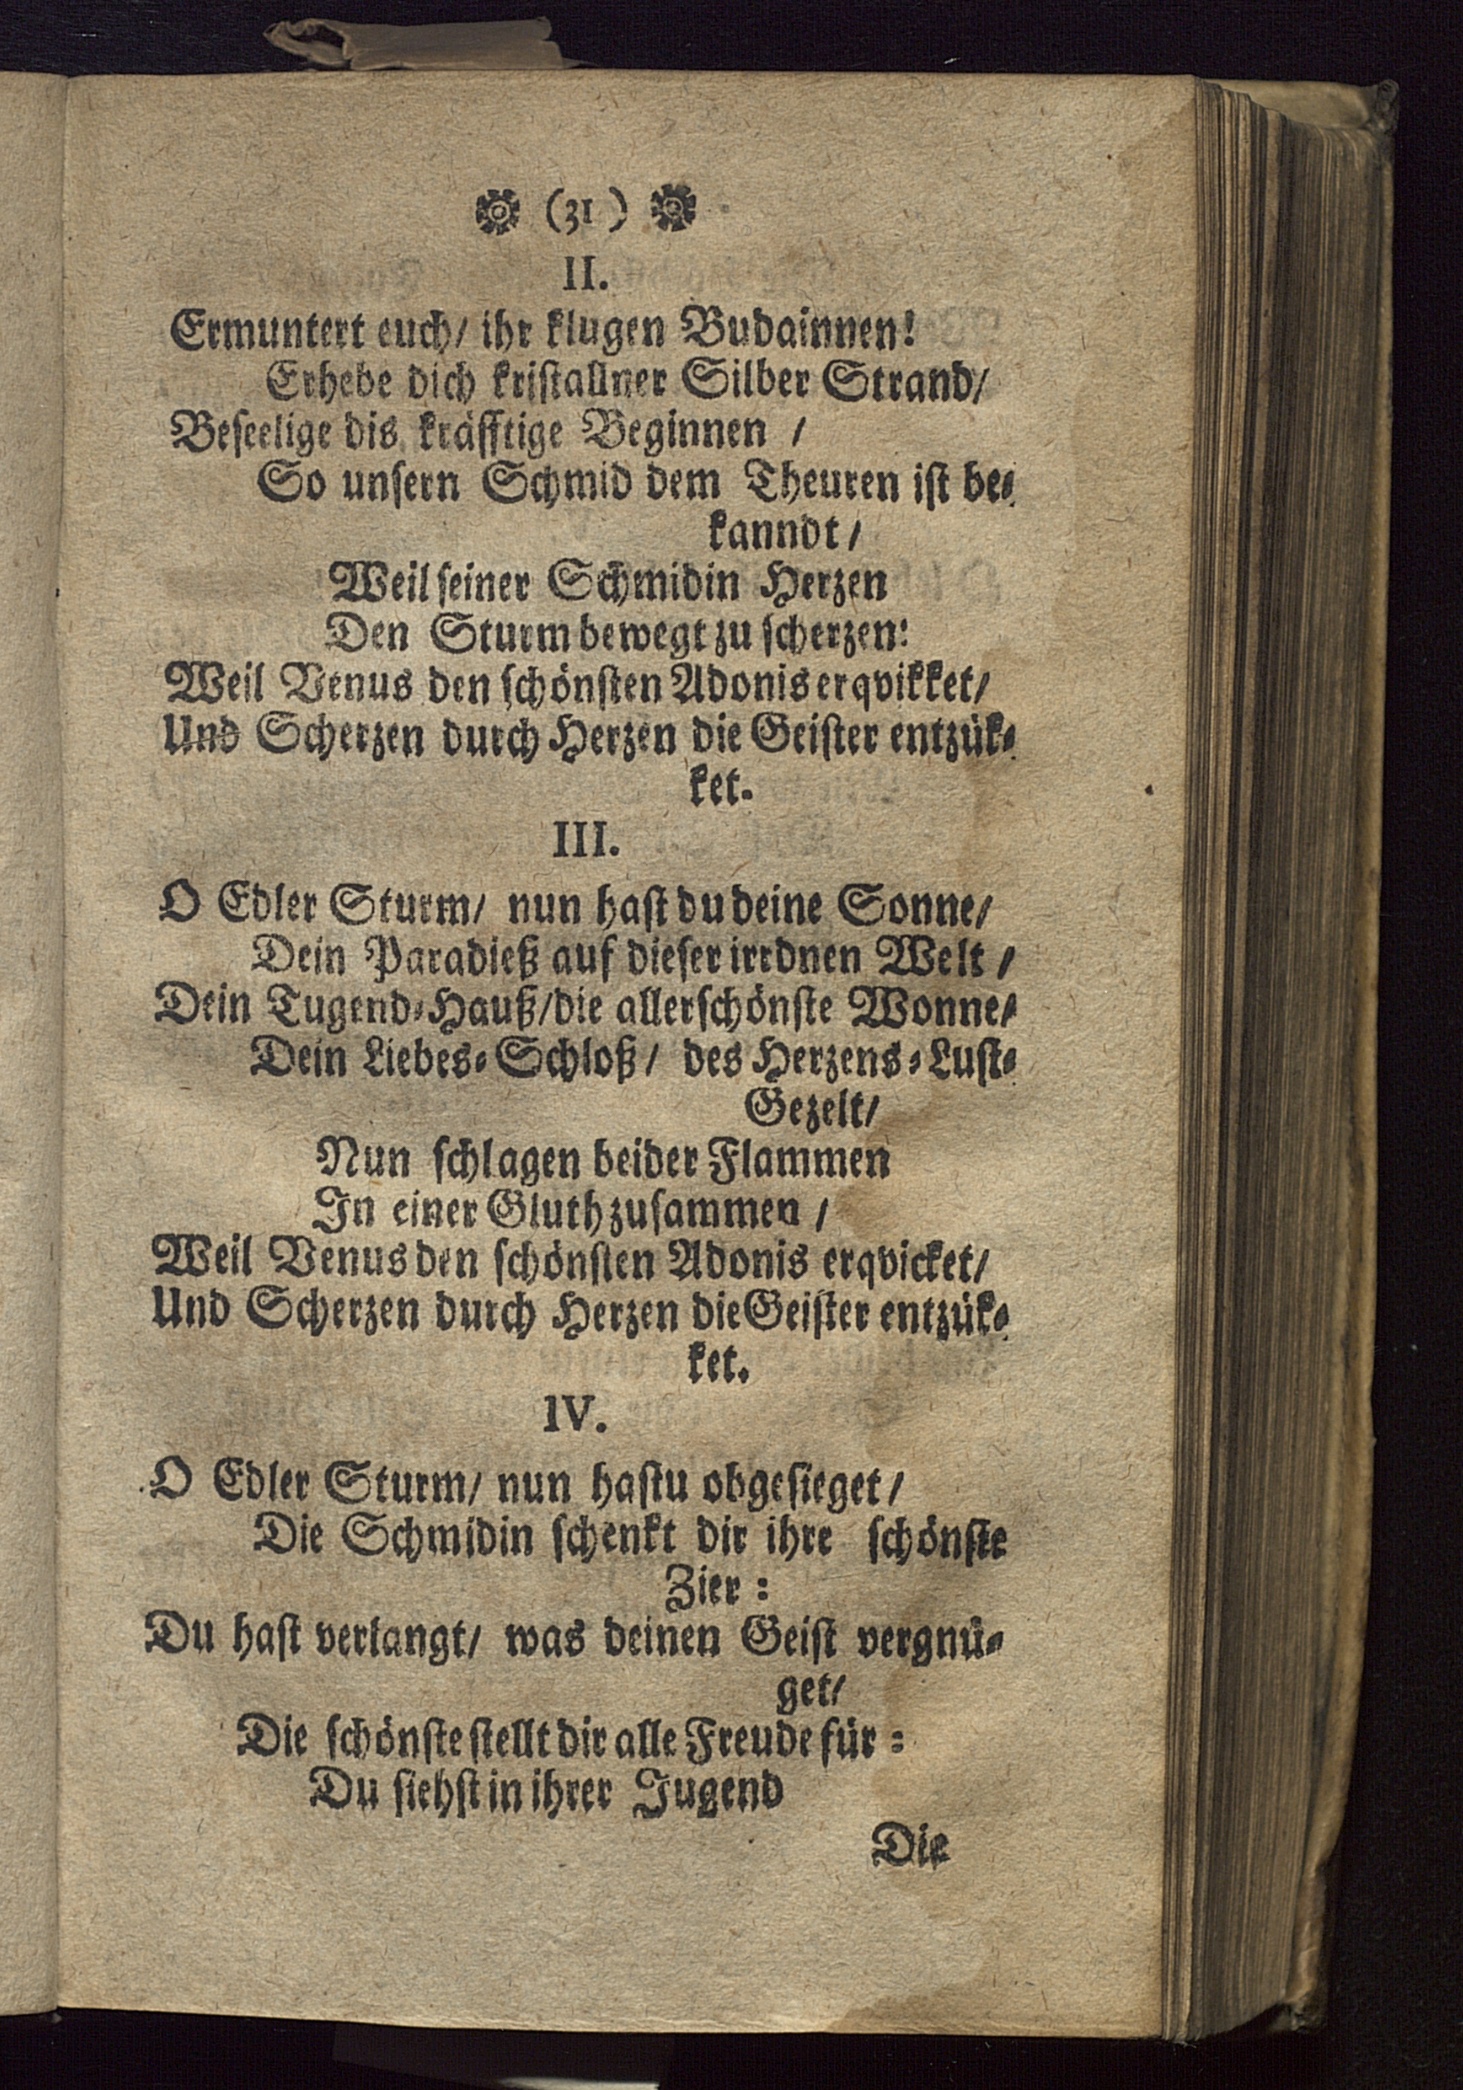 (31)
II.
Ermuntert euch/ ihr klugen Budainnen!
Erhebe dich kristallner Silber Strand/
Beseelige dis kräfftige Beginnen /
So unsern Schmid dem Theuren ist be-
kanndt/
Weil seiner Schmidin Herzen
Den Sturm bewegt zu scherzen:
Weil Venus den schönsten Adonis erqvikket/
Und Scherzen durch Herzen die Geister entzük-
ket.
III.
O Edler Sturm/ nun hast du deine Sonne/
Dein Paradieß auf dieser irrdnen Welt /
Dein Tugend-Hauß/die allerschönste Wonne/
Dein Liebes-Schloß/ des Herzens-Lust-
Gezelt/
Nun schlagen beider Flammen
In einer Gluth zusammen /
Weil Venus den schönsten Adonis erqvicket/
Und Scherzen durch Herzen die Geister entzük-
ket.
IV.
O Edler Sturm/ nun hastu obgesieget/
Die Schmidin schenkt dir ihre schönste
Zier:
Du hast verlangt/ was deinen Geist vergnü-
get/
Die schönste stellt dir alle Freude für:
Du siehst in ihrer Jugend
Die